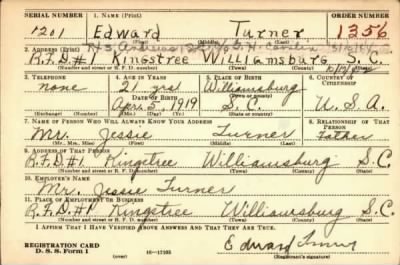 SERIAL NUMBER 1. NAME (Print) ORDER NUMBER
1201 Edward Turner 1356
(First) (Middle) (Last)
2. ADDRESS (Print)
R.F.D.#1 Kingstree Williamsburg S.C.
(Number and street or R. F. D. number) (Town) (County) (State)
3. TELEPHONE 4. AGE IN YEARS 5. PLACE OF BIRTH 6. COUNTRY OF CITIZENSHIP
none 21 yrs Williamsburg
DATE OF BIRTH (Town or county)
April 5, 1919 S.C. U.S.A.
(Exchange) (Number) (Mo.) (Day) (Yr.) (State or country)
7. NAME OF PERSON WHO WILL ALWAYS KNOW YOUR ADDRESS 8. RELATIONSHIP OF THAT PERSON
Mr. Jessie Turner Father
(Mr., Mrs., Miss) (First) (Middle) (Last)
9. ADDRESS OF THAT PERSON
R.F.D.#1 Kingstree Williamsburg S.C.
(Number and street or R. F. D. number) (Town) (County) (State)
10. EMPLOYER'S NAME
Mr. Jessie Turner
11. PLACE OF EMPLOYMENT OR BUSINESS
R.F.D.#1 Kingstree Williamsburg S.C.
(Number and street or R. F. D. number) (Town) (County) (State)
I AFFIRM THAT I HAVE VERIFIED ABOVE ANSWERS AND THAT THEY ARE TRUE.
Edward Turner
REGISTRATION CARD
D. S. S. Form 1 (over) 16—17105 (Registrant's signature)